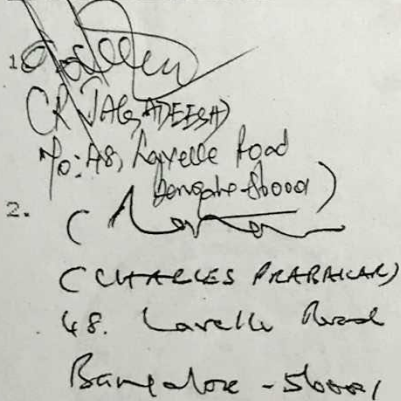 1.
(R. JAGADEESH)
No: 48, Lavelle Road
Bangalore-560001)
2. (
(CHARLES PRABAKAR)
48. Lavelle Road
Bangalore - 560001